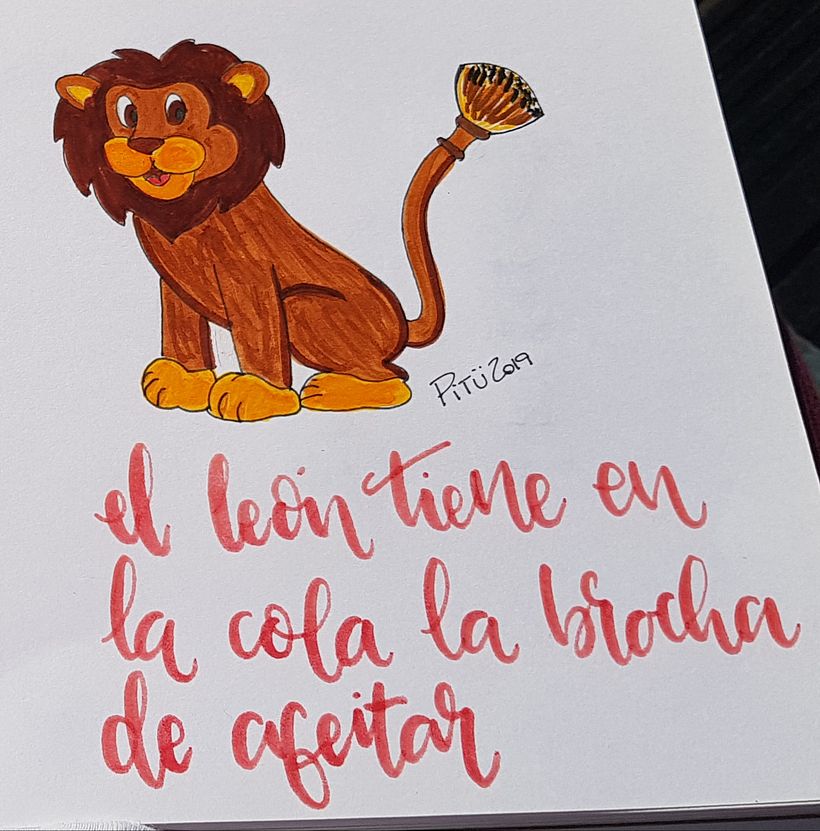 PiTÜ 2019
el león tiene en
la cola la brocha
de afeitar